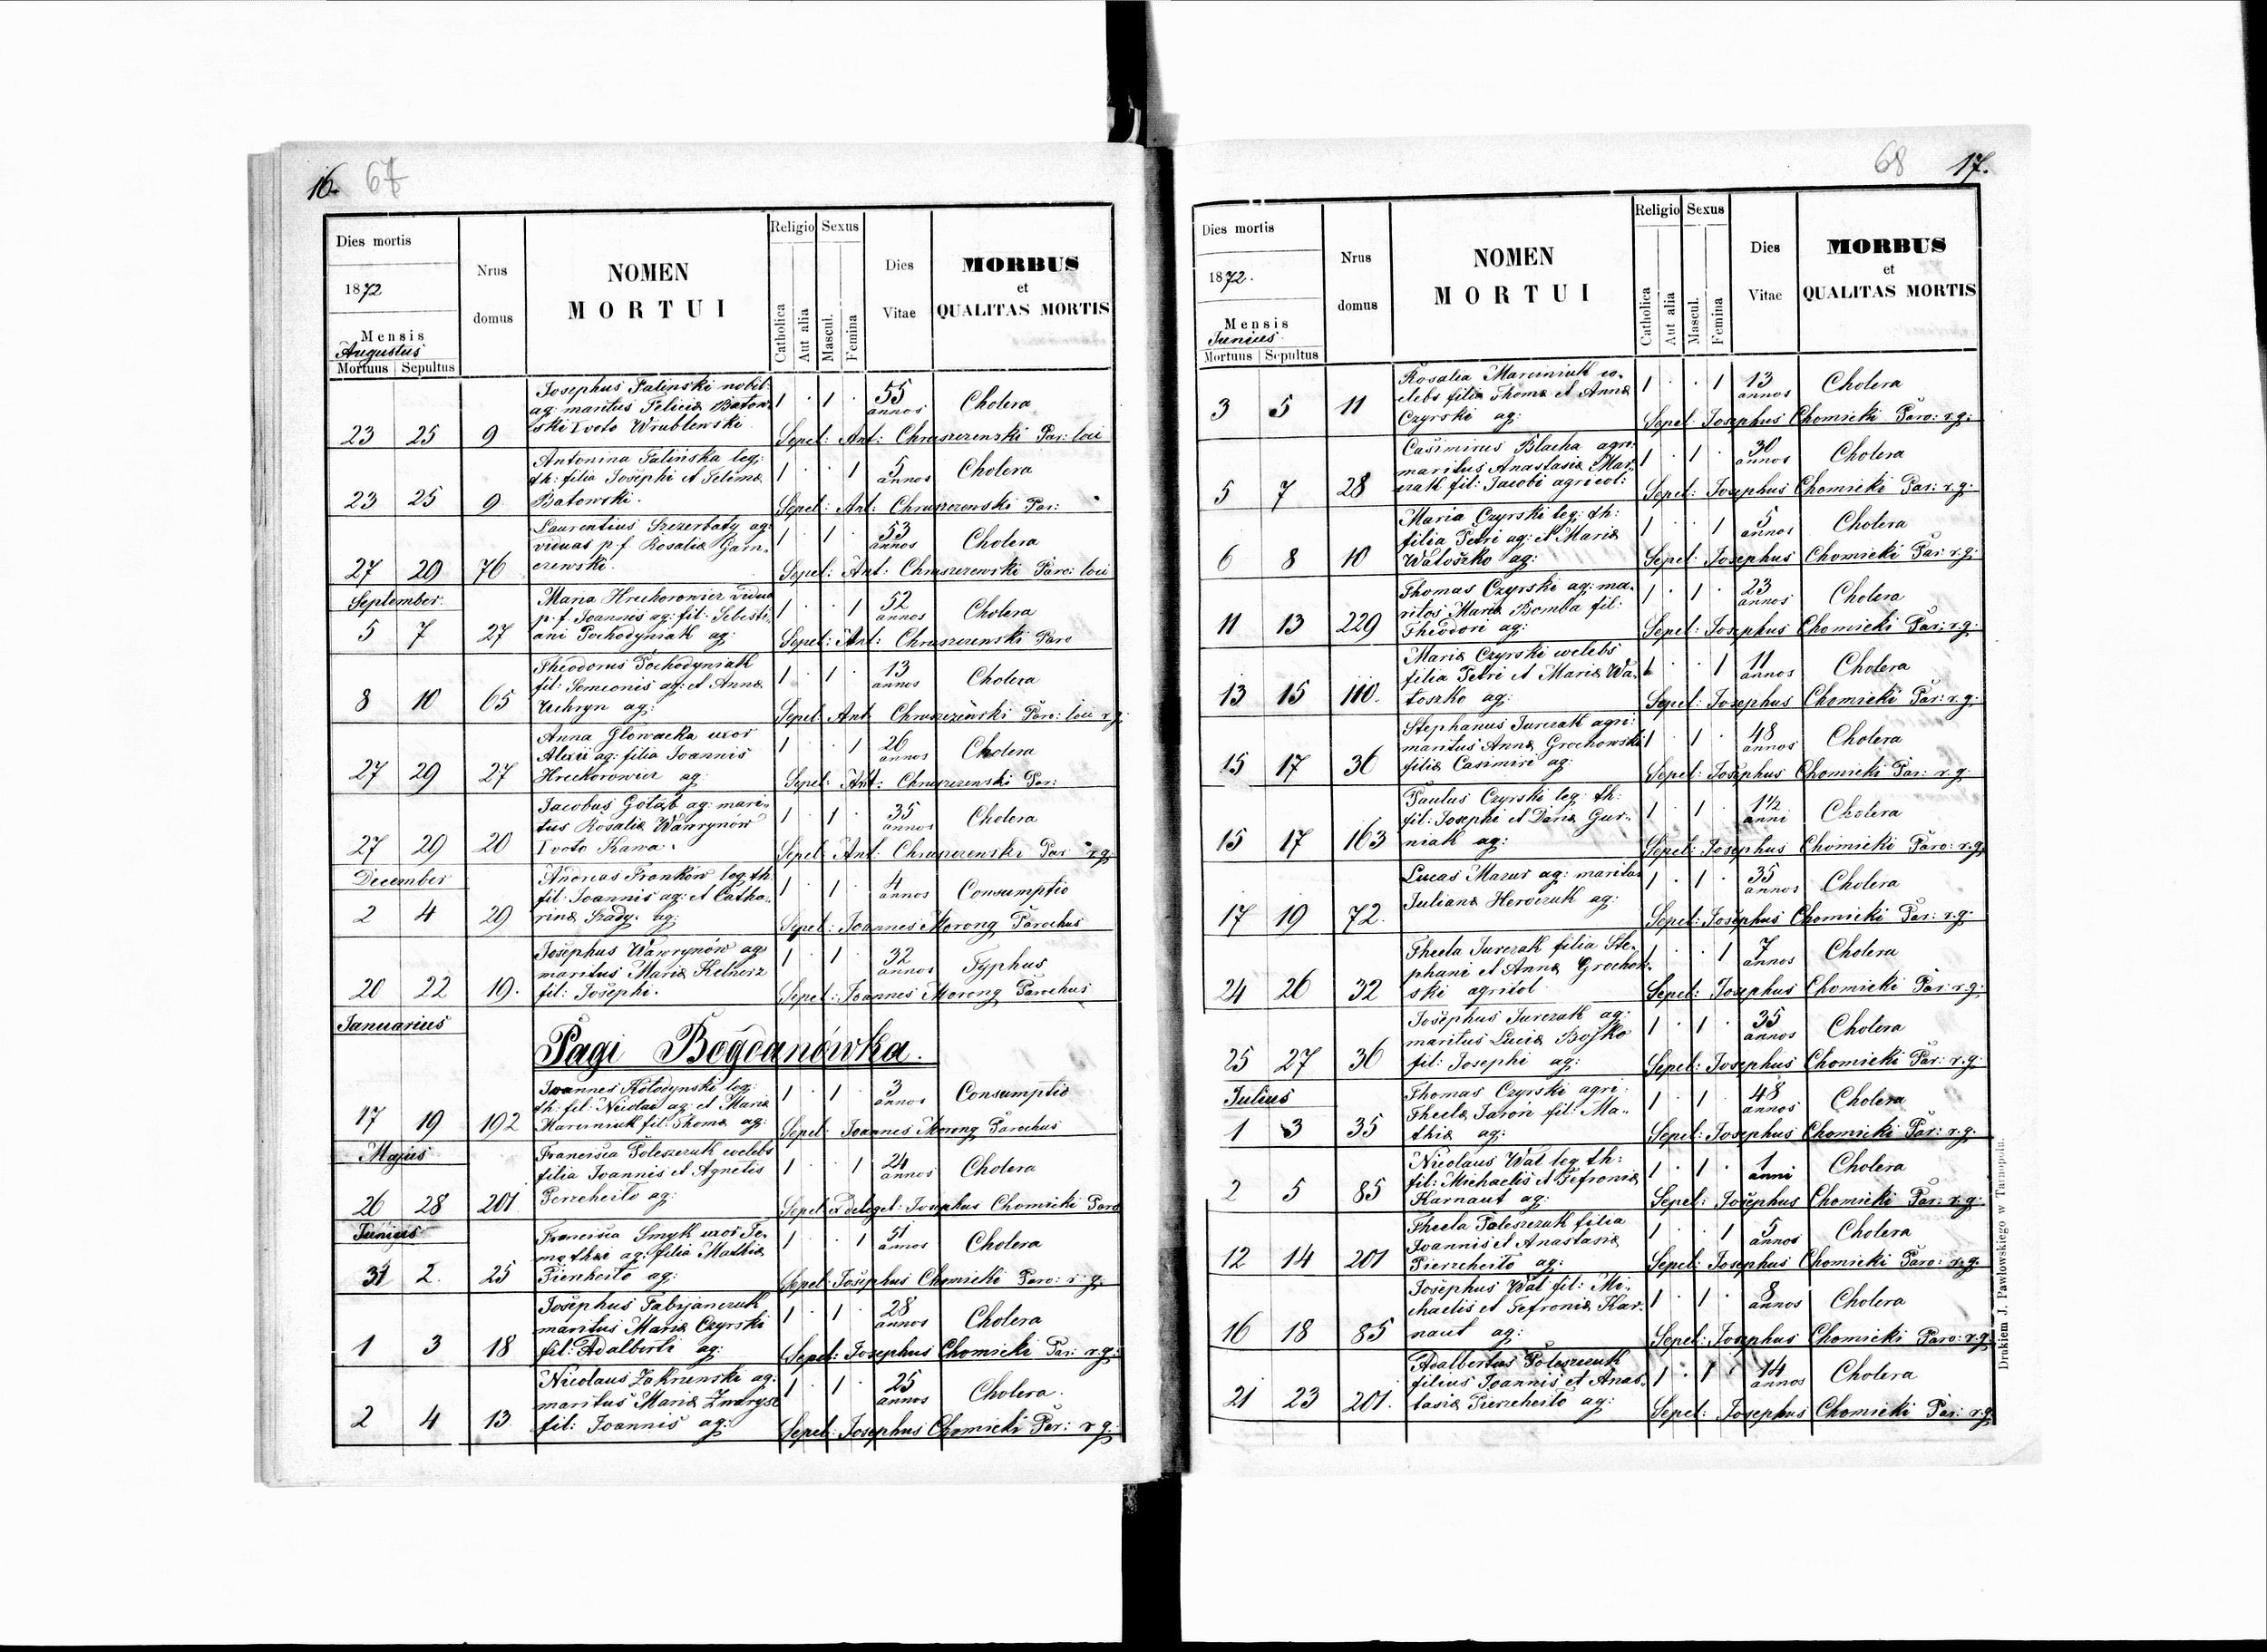 16. 67
Dies mortis
1872
Mensis
Augustus
Mortuus Sepultus
Nrus domus
NOMEN
MORTUI
Religio
Catholica
Aut alia
Sexus
Mascul.
Femina
Dies
Vitae
MORBUS
et
QUALITAS MORTIS
Josephus Palinski nobil:
ag: maritus Felicia Batow
ski I voto Wrublewski
23 25 9 1 . 1 . 55 annos Cholera
Sepel: Ant: Chruszczewski Par: loci
Antonina Palińska leg:
th: filia Josephi et Felicia
Batowski.
23 25 9 1 . . 1 5 annos Cholera
Sepel: Ant: Chruszczewski Par:
Laurentius Szczerbaty ag:
viduus p. f. Rosalia Garn
czewski.
27 29 76 1 . 1 . 53 annos Cholera
Sepel: Ant: Chruszczewski Paro: loci
September
Maria Hrechorowicz vidua
p. f. Joannis ag: fil: Sebesti
ani Pochodyniak ag:
5 7 27 1 . . 1 52 annos Cholera
Sepel: Ant: Chruszczewski Paro
Theodorus Pochodyniak
fil: Semionis ag: et Anna
Uchryn ag:
8 10 65 1 . 1 . 13 annos Cholera
Sepel Ant Chruszczewski Paro: loci r. g.
Anna Glowacka uxor
Alexii ag: filia Joannis
Hrechorowicz ag:
27 29 27 1 . . 1 26 annos Cholera
Sepel: Ant: Chruszczewski Par:
Jacobus Gołąb ag: mari„
tus Rosalia Wawrynów
I voto Kawa.
27 29 20 1 . 1 . 35 annos Cholera
Sepel: Ant: Chruszczewski Par r. g.
December
Andreas Franków leg. th:
fil: Joannis ag: et Catha„
rina ag:
2 4 29 1 . 1 . 4 annos Consumptio
Sepel: Joannes Morong Parochus
Josephus Wawrynów ag:
maritus Maria Kelnerz
fil: Josephi.
20 22 19. 1 . 1 . 32 annos Typhus
Sepel: Joannes Morong Parochus
Januarius
Pagi Bogdanówka.
Joannes Kołodynski leg:
th: fil: Nicolai ag: et Maria
Marciniuk fil: Thoma ag:
17 19 192 1 . 1 . 3 annos Consumptio
Sepel: Joannes Morong Parochus
Majus
Francisca Poleszczuk coelebs
filia Joannis et Agnetis
ag:
26 28 201 1 . . 1 24 annos Cholera
Sepel: deleget: Josephus Chomicki Paro
Junius
Francisca Smyk uxor Te„
mothei ag: filia Mathia
ag:
31 2. 25 1 . . 1 51 annos Cholera
Sepel: Josephus Chomicki Paro: r. g.
Josephus Fabyanczuk
maritus Maria Czyrski
fil: Adalberti ag:
1 3 18 1 . 1 . 28 annos Cholera
Sepel: Josephus Chomicki Par: r. g.
Nicolaus Zakrzewski ag:
maritus Maria Zwarysz
fil: Joannis ag:
2 4 13 1 . 1 . 25 annos Cholera.
Sepel: Josephus Chomicki Par: r. g.
68 17.
Dies mortis
1872.
Mensis
Junius
Mortuus Sepultus
Nrus domus
NOMEN
MORTUI
Religio
Catholica
Aut alia
Sexus
Mascul.
Femina
Dies
Vitae
MORBUS
et
QUALITAS MORTIS
Rosalia Marciniuk co„
elebs filia Thoma et Anna
Czyrski ag:
3 5 11 1 . . 1 13 annos Cholera
Sepel: Josephus Chomicki Paro: r. g:
Casimirus Blacha agri:
maritus Anastasia Mar„
czak fil: Jacobi agricol:
5 7 28 1 . 1 . 30 annos Cholera
Sepel: Josephus Chomicki Par: r. g:
Maria Czyrski leg: th:
filia Petri ag: et Maria
Watoszko ag:
6 8 10 1 . . 1 5 annos Cholera
Sepel: Josephus Chomicki Par: r. g:
Thomas Czyrski ag: ma„
ritus Maria Bomba fil:
Theodori ag:
11 13 229 1 . 1 . 23 annos Cholera
Sepel: Josephus Chomicki Par: r. g:
Maria Czyrski coelebs
filia Petri et Maria Wa„
toszko ag:
13 15 110. 1 . . 1 11 annos Cholera
Sepel: Josephus Chomicki Par: r. g.
Stephanus Jurczak agri:
maritus Anna Grochowski
filia Casimiri ag:
15 17 36 1 . 1 . 48 annos Cholera
Sepel: Josephus Chomicki Par: r. g:
Paulus Czyrski leg: th:
fil: Josephi et Daria Gur„
niak ag:
15 17 163 1 . 1 . 1½ anni Cholera
Sepel: Josephus Chomicki Paro: r. g.
Lucas Mazur ag: maritus
Juliana Herczuk ag:
17 19 72. 1 . 1 . 35 annos Cholera
Sepel: Josephus Chomicki Par: r. g.
Thecla Jurczak filia Ste„
phani et Anna Grochow„
ski agricol
24 26 32 1 . . 1 7 annos Cholera
Sepel: Josephus Chomicki Par r. g.
Josephus Jurczak ag:
maritus Lucia Bojko
fil: Josephi ag:
25 27 36 1 . 1 . 35 annos Cholera
Sepel: Josephus Chomicki Par: r. g.
Julius
Thomas Czyrski agri:
Thecla Jaroń fil: Ma„
thia ag:
1 3 35 1 . 1 . 48 annos Cholera
Sepel: Josephus Chomicki Par: r. g.
Nicolaus Wal leg th:
fil: Michaelis et Fefronia
Harnaut ag:
2 5 85 1 . 1 . 1 anni Cholera
Sepel: Josephus Chomicki Par: r. g:
Thecla Poleszczuk filia
Joannis et Anastasia
ag:
12 14 201 1 . . 1 5 annos Cholera
Sepel: Josephus Chomicki Paro: r. g.
Josephus Wal fil: Mi„
chaelis et Fefronia Har„
naut ag:
16 18 85 1 . 1 . 8 annos Cholera
Sepel: Josephus Chomicki Paro: r. g.
Adalbertus Poleszczuk
filius Joannis et Anas„
tasia ag:
21 23 201. 1 . 1 . 14 annos Cholera
Sepel: Josephus Chomicki Par: r. g.
Drukiem J. Pawłowskiego w Tarnopolu.